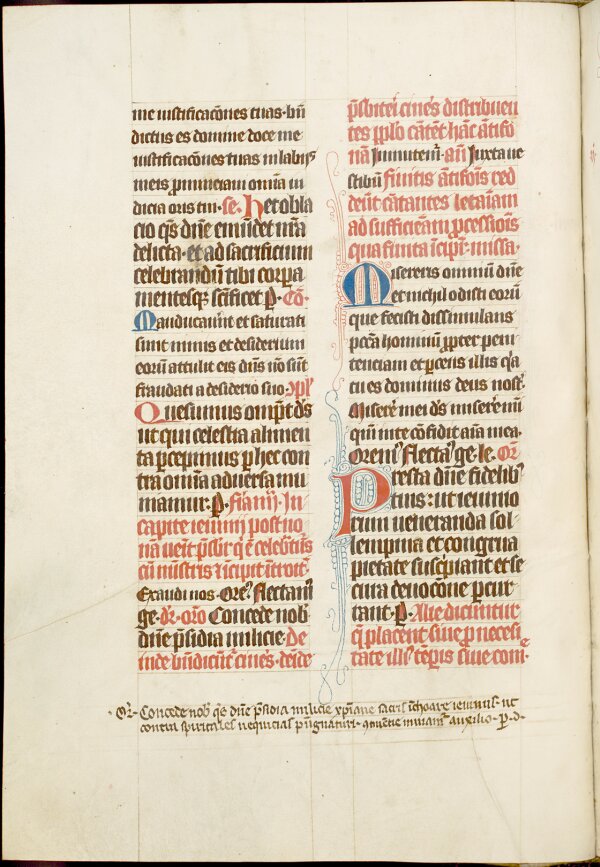 me iustificac̄ones tuas· bn̄
dictus es domine doce me
iustificac̄ones tuas in labijs
meis pronunciaui omnia iu
dicia oris tui· se· Hec obla
cio qs̄ dn̄e emūdet nr̄a
delicta· et ad sacrificium
celebrandū tibi corpa
mentesq; sc̄ificet p̱· Cō·
Manducauer̄t et saturati
sunt nimis et desiderium
eorū attulit eis dn̄s nō sūt
fraudati a desiderio suo· 
Quesumus omp̄t ds̄
ut qui celestia alimen
ta percepimus per hec con
tra omnia aduersa mu
niamur· p̱· In
capite ieiunij post no
nā
Exaudi nos· Ore᷒ flectam᷒
ge· dr̄· oro Concede nob
dn̄e p̄sidia milicie· De
inde bn̄dicūt᷒ cines· deīde
p̄sbiteri cines distribuen
tes pplo cātēt hāc ātifo
nā Inmutem᷒· an̄ Iuxta ue
stibu᷒ Finitis ātifois red
deūt cātantes letaīam
ad sufficiēciam p̱cessiois
qua finita īcipit᷒ missa·
Misereris omniū dn̄e
et nichil odisti eorū
que fecisti dissimulans
pcc̄a hominū propter peni
tenciam et parcens illis q̄a
tu es dominus deus nost᷒
Misere᷒ mei ds̄ miserere mī
qm̄ in te cōfidit aīa mea·
Orem᷒ flecta᷒ ge· le· Or̄
Presta dn̄e fidelib᷒
tuis : ut ieiunio
rum ueneranda sol
lempnia et congrua
pietate suscipiant et se
cura deuoc̄one percur
rant· p̱· Alie dicuntur
q̄ placent siue p̱ necessi
tate illi᷒ tēpis siue com·
· Or̄· Concede nob᷒ qs̄ dn̄e p̄sidia milicie xp̄iane sacris īchoare ieiuniis· ut
contra spiritales nequicias pugnaturi· 9tinēcie muniam᷒ auxilio· p̱· d·